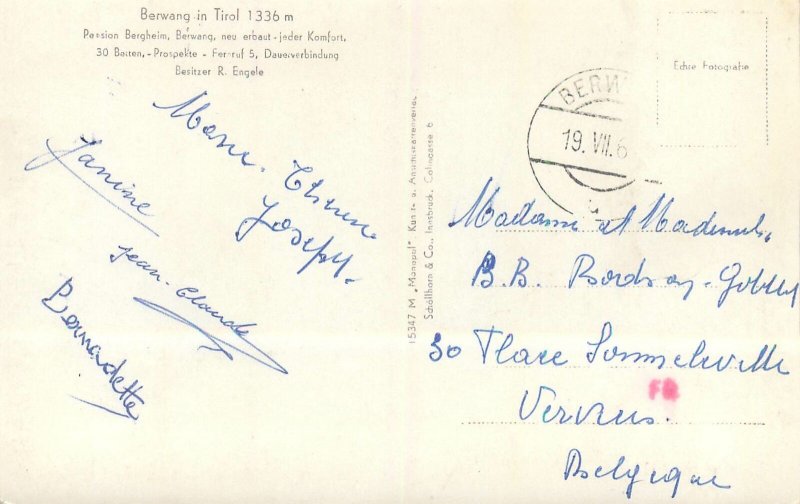 Berwang in Tirol 1336 m
Pension Bergheim, Berwang, neu erbaut - jeder Komfort,
30 Betten, - Prospekte - Fernruf 5, Dauerverbindung
Besitzer R. Engele
Janine
Joseph.
Jean-Claude
Bernadette
15347 M „Monopol" Kunst- u. Ansichtskartenverlag
Schöllhorn & Co., Innsbruck, Colingasse 6
Echte Fotografie
BERW
19. VII. 6
Madame et
B.B.
30 Place Sommeleville
FB
Belgique